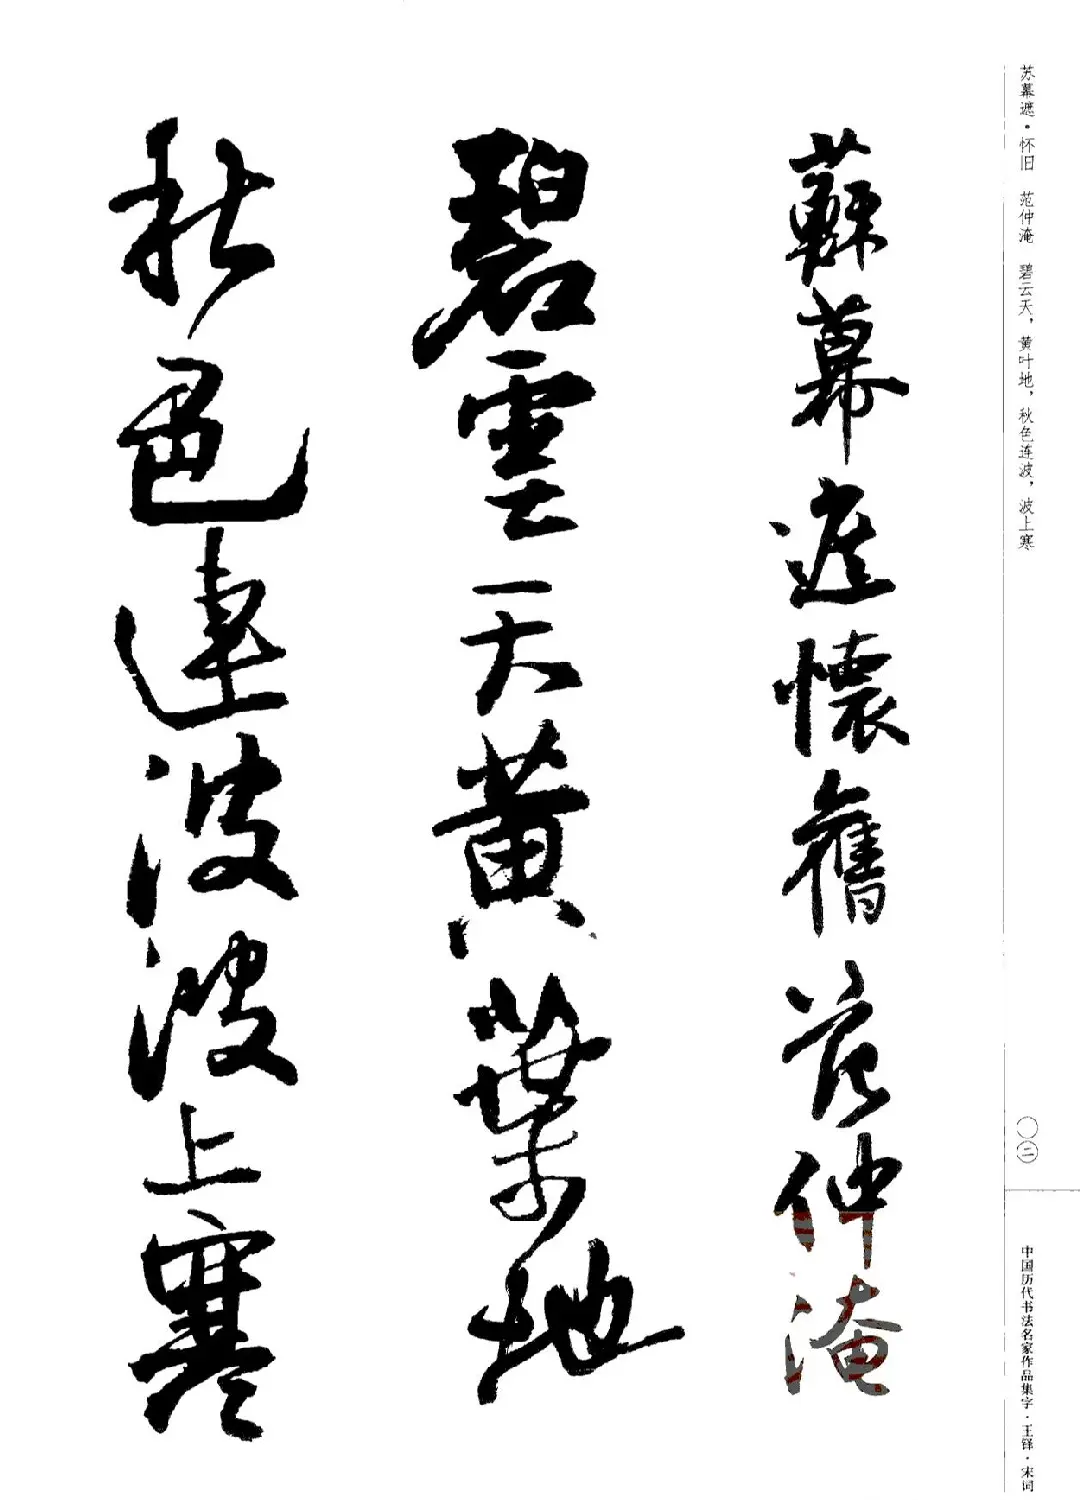 苏幕遮·怀旧　范仲淹　碧云天，黄叶地，秋色连波，波上寒
蘇幕遮懷舊范仲淹
碧雲天黃葉地
秋色連波波上寒
〇二
中国历代书法名家作品集字·王铎·宋词